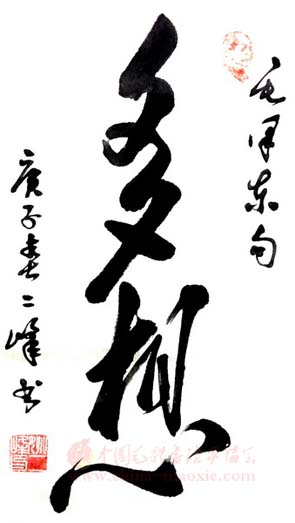 毛泽东句
多想
庚子春二峰书
中国毛体书法家协会
www.china-maoxie.com